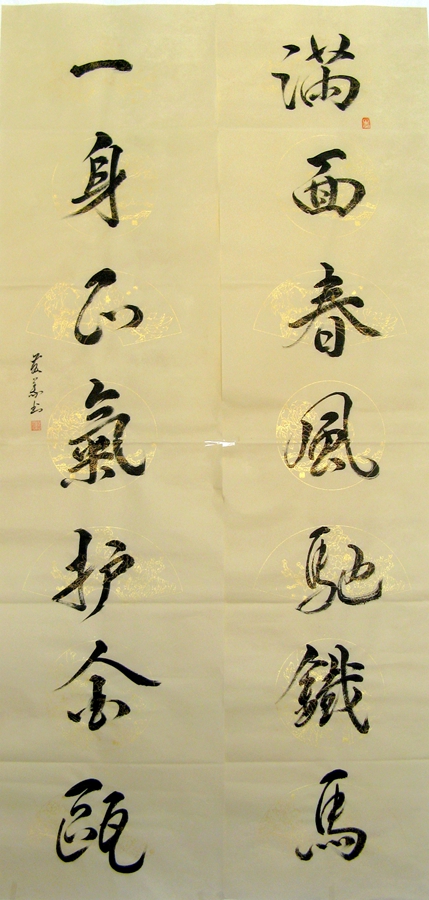 满面春风馳鐵馬
一身正氣护金甌